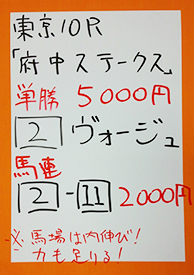 東京10R
「府中ステークス」
単勝 5000円
2 ヴォージュ
馬連
2-11 2000円
※馬場は内伸び!
力も足りる!